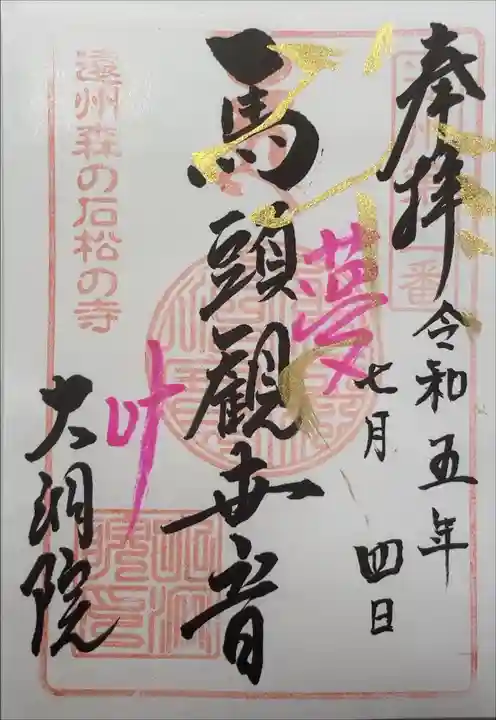 奉拝
令和五年
七月四日
夢
馬頭觀世音
叶
大洞院
遠州森の石松の寺